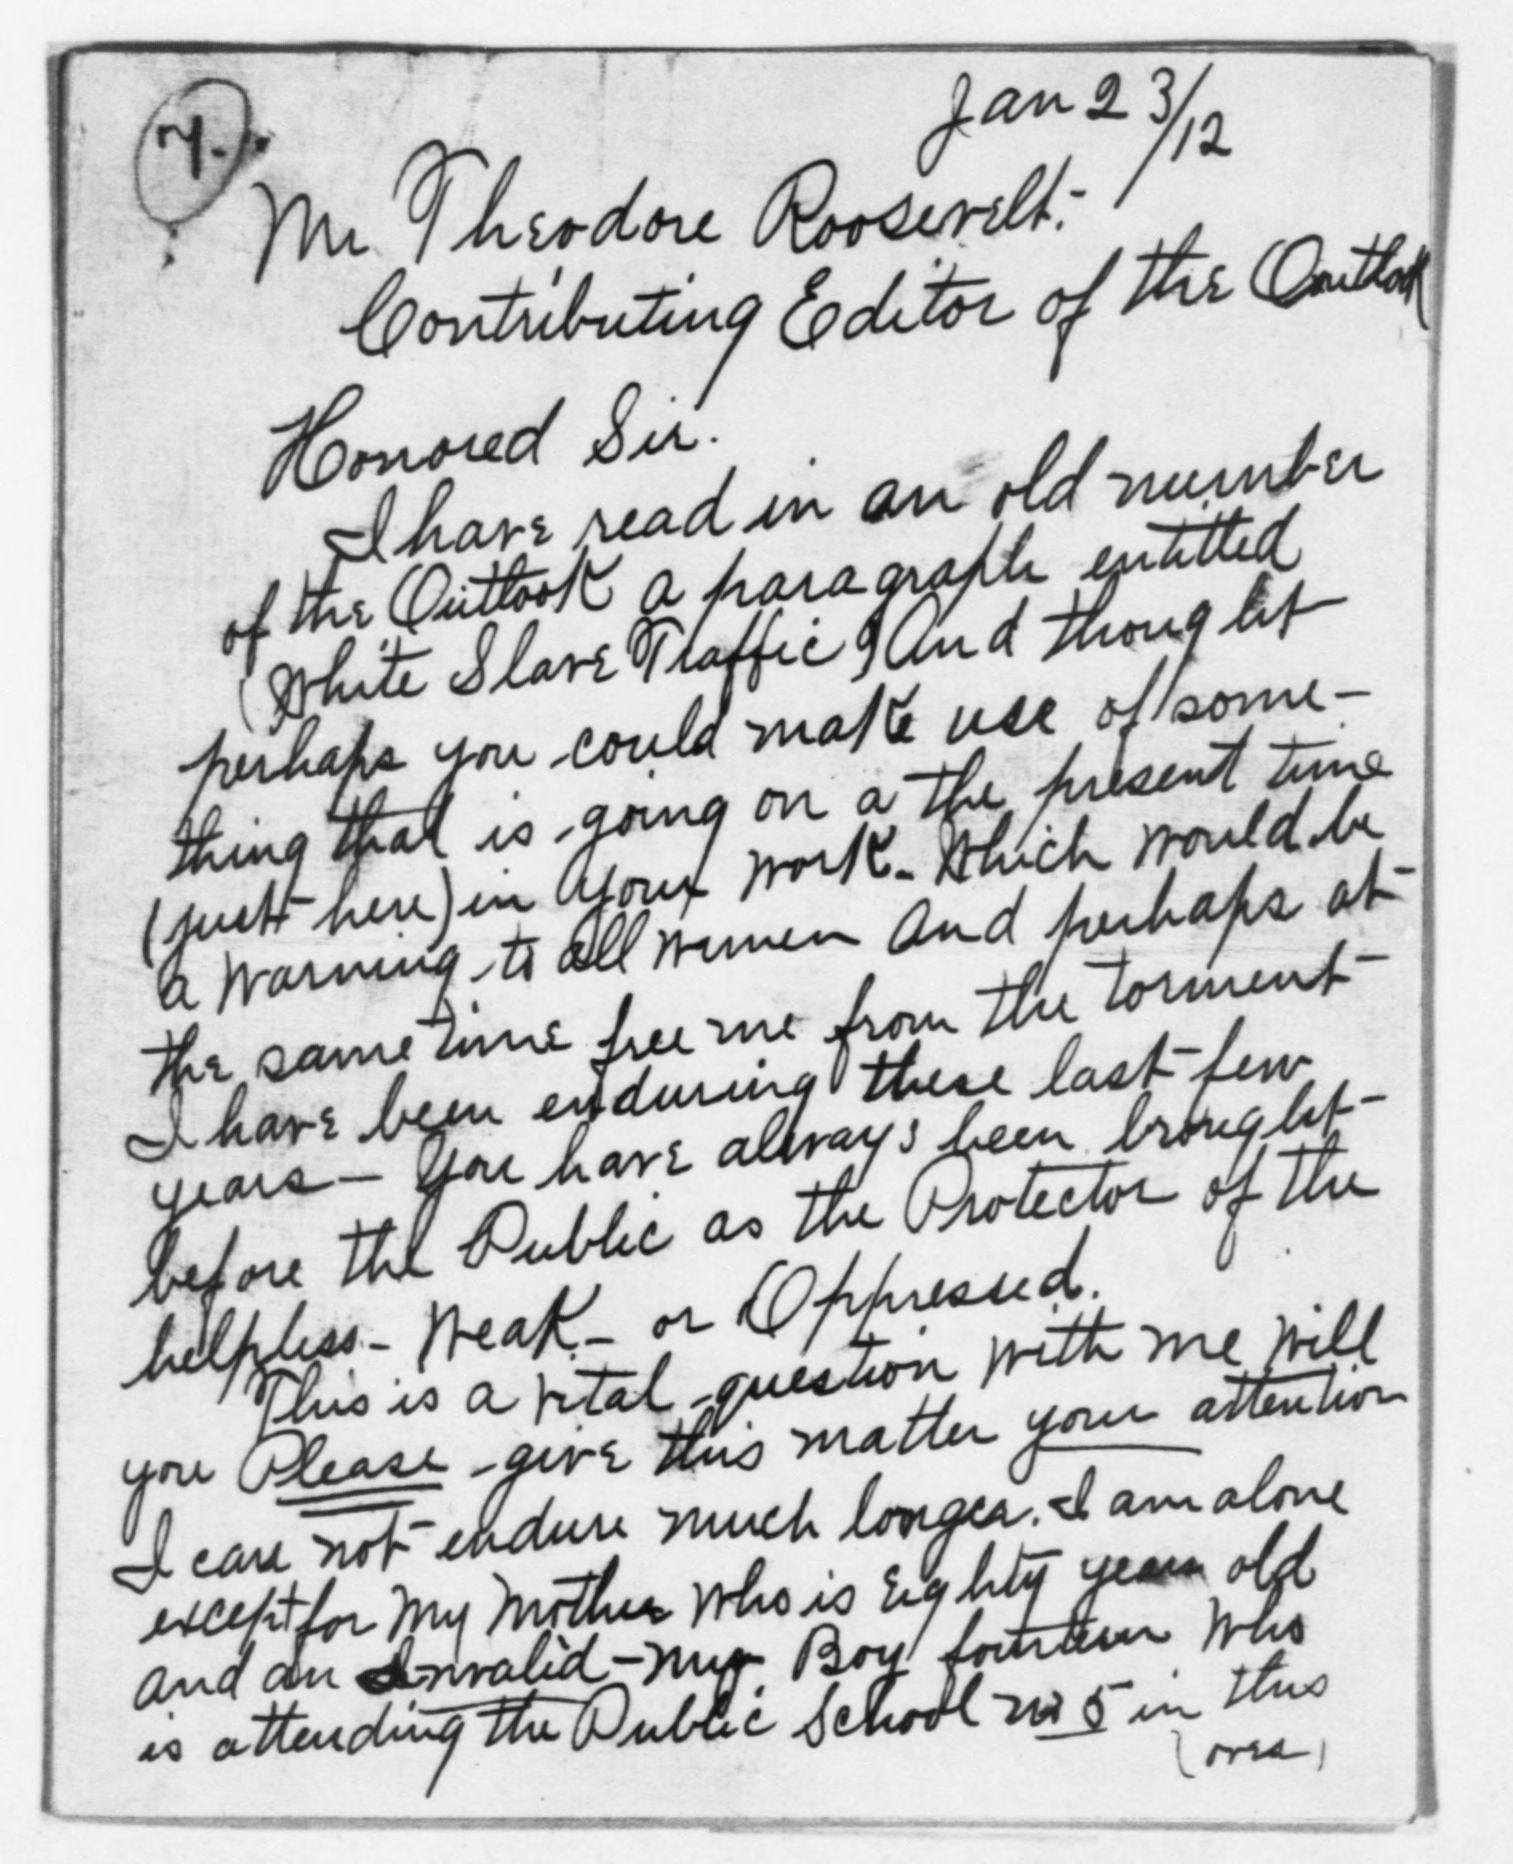 Jan 23/12
Mr Theodore Roosevelt:-
Contributing Editor of the Outlook
Honored Sir.
I have read in an old number
of the Outlook a paragraph entitled
(White Slave Traffic) And thought
perhaps you could make use of some-
thing that is going on a the present time
(just here) in your work - Which would be
a warning to all women and perhaps at
the same time free me from the torment
I have been enduring these last few
years - You have always been brought
before the Public as the Protector of the
helpless - Weak - or Oppressed.
This is a vital question with me will
you Please give this matter your attention
I can not endure much longer. I am alone
except for My Mother who is Eighty years old
and an Invalid - my Boy fourteen who
is attending the Public School no 5 in this
(over)